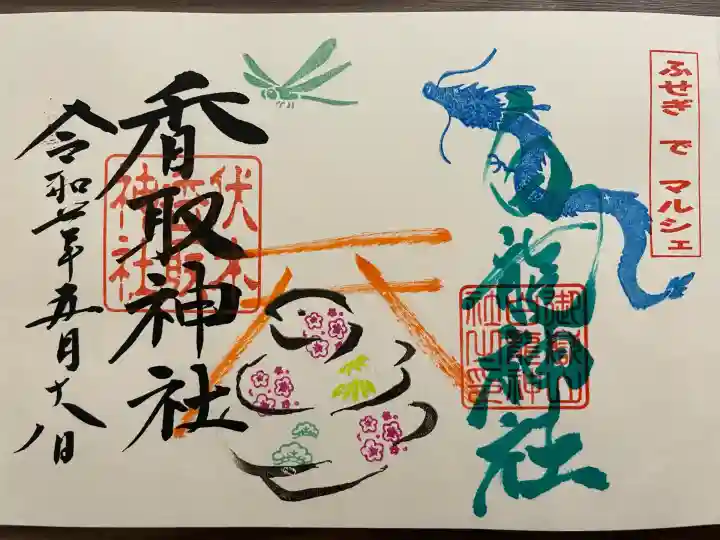 ふせぎ で マルシェ
白龍神社
御嶽山
白龍神
社之印
香取神社
伏木
香取
神社
令和六年五月十八日